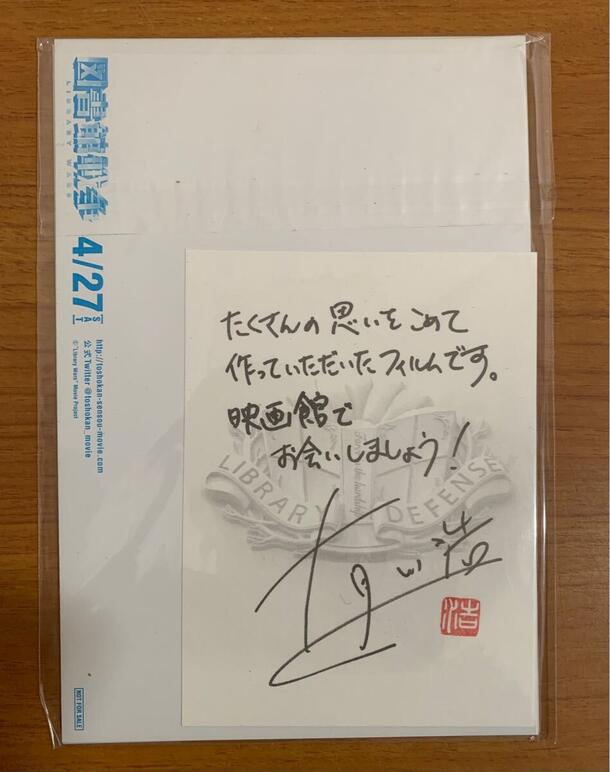 図書館戦争
LIBRARY WARS
4/27 SAT
http://toshokan-sensou-movie.com
公式Twitter @toshokan_movie
©"Library Wars" Movie Project
NOT FOR SALE
たくさんの思いをこめて
作っていただいたフィルムです。
映画館で
お会いしましょう!
LIBRARY DEFENSE
有川浩
浩